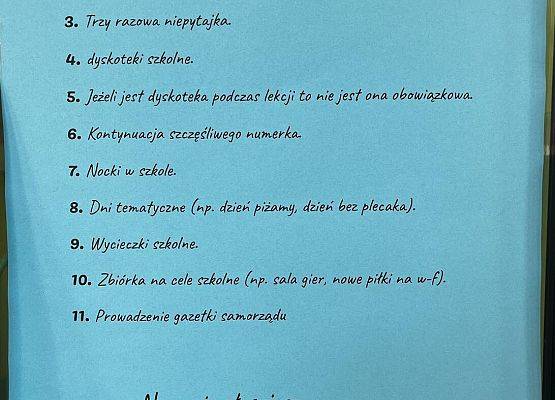 3. Trzy razowa niepytajka.
4. dyskoteki szkolne.
5. Jeżeli jest dyskoteka podczas lekcji to nie jest ona obowiązkowa.
6. Kontynuacja szczęśliwego numerka.
7. Nocki w szkole.
8. Dni tematyczne (np. dzień piżamy, dzień bez plecaka).
9. Wycieczki szkolne.
10. Zbiórka na cele szkolne (np. sala gier, nowe piłki na w-f).
11. Prowadzenie gazetki samorządu